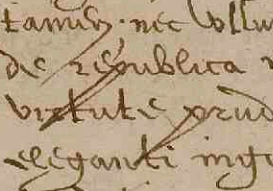 tamen, nec ullu
de republica
virtute prud
eleganti inge